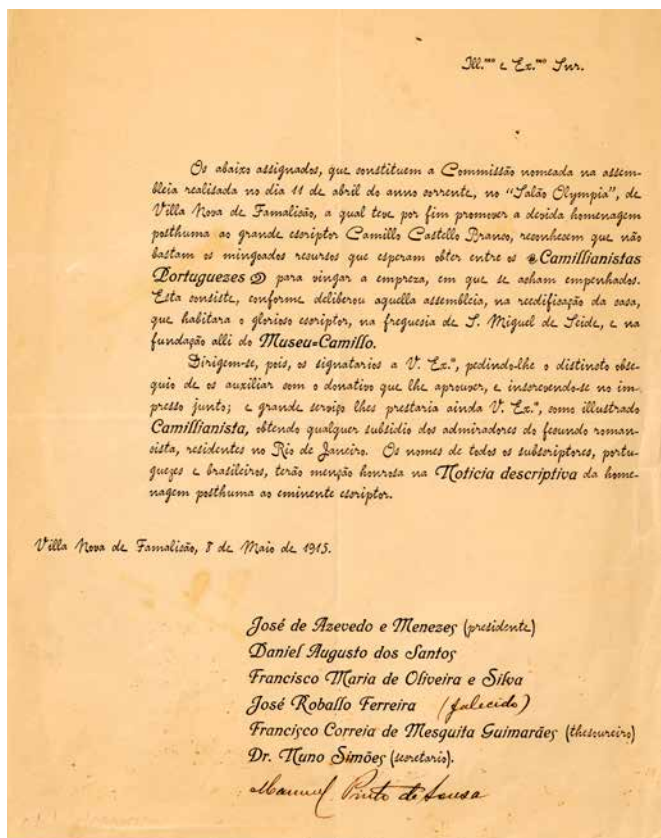 Ill.mo e Ex.mo Snr.
Os abaixo assignados, que constituem a Commissão nomeada na assem-
bleia realisada no dia 11 de abril do anno corrente, no "Salão Olympia", de
Villa Nova de Famalicão, a qual teve por fim promover a devida homenagem
posthuma ao grande escriptor Camillo Castello Branco, reconhecem que não
bastam os mingoados recursos que esperam obter entre os Camillianistas
Portuguezes para vingar a empreza, em que se acham empenhados.
Esta consiste, conforme deliberou aquella assembleia, na reedificação da casa,
que habitara o glorioso escriptor, na freguesia de S. Miguel de Seide, e na
fundação alli do Museu-Camillo.
Dirigem-se, pois, os signatarios a V. Ex.ª, pedindo-lhe o distincto obse-
quio de os auxiliar com o donativo que lhe aprouver, e inscrevendo-se no im-
presso junto; e grande serviço lhes prestaria ainda V. Ex.ª, como illustrado
Camillianista, obtendo qualquer subsidio dos admiradores do fecundo roman-
cista, residentes no Rio de Janeiro. Os nomes de todos os subscriptores, portu-
guezes e brasileiros, terão menção honrosa na Noticia descriptiva da home-
nagem posthuma ao eminente escriptor.
Villa Nova de Famalicão, 8 de Maio de 1915.
José de Azevedo e Menezes (presidente)
Daniel Augusto dos Santos
Francisco Maria de Oliveira e Silva
José Roballo Ferreira (falecido)
Francisco Correia de Mesquita Guimarães (thesoureiro)
Dr. Nuno Simões (secretario).
Manuel Pinto de Sousa